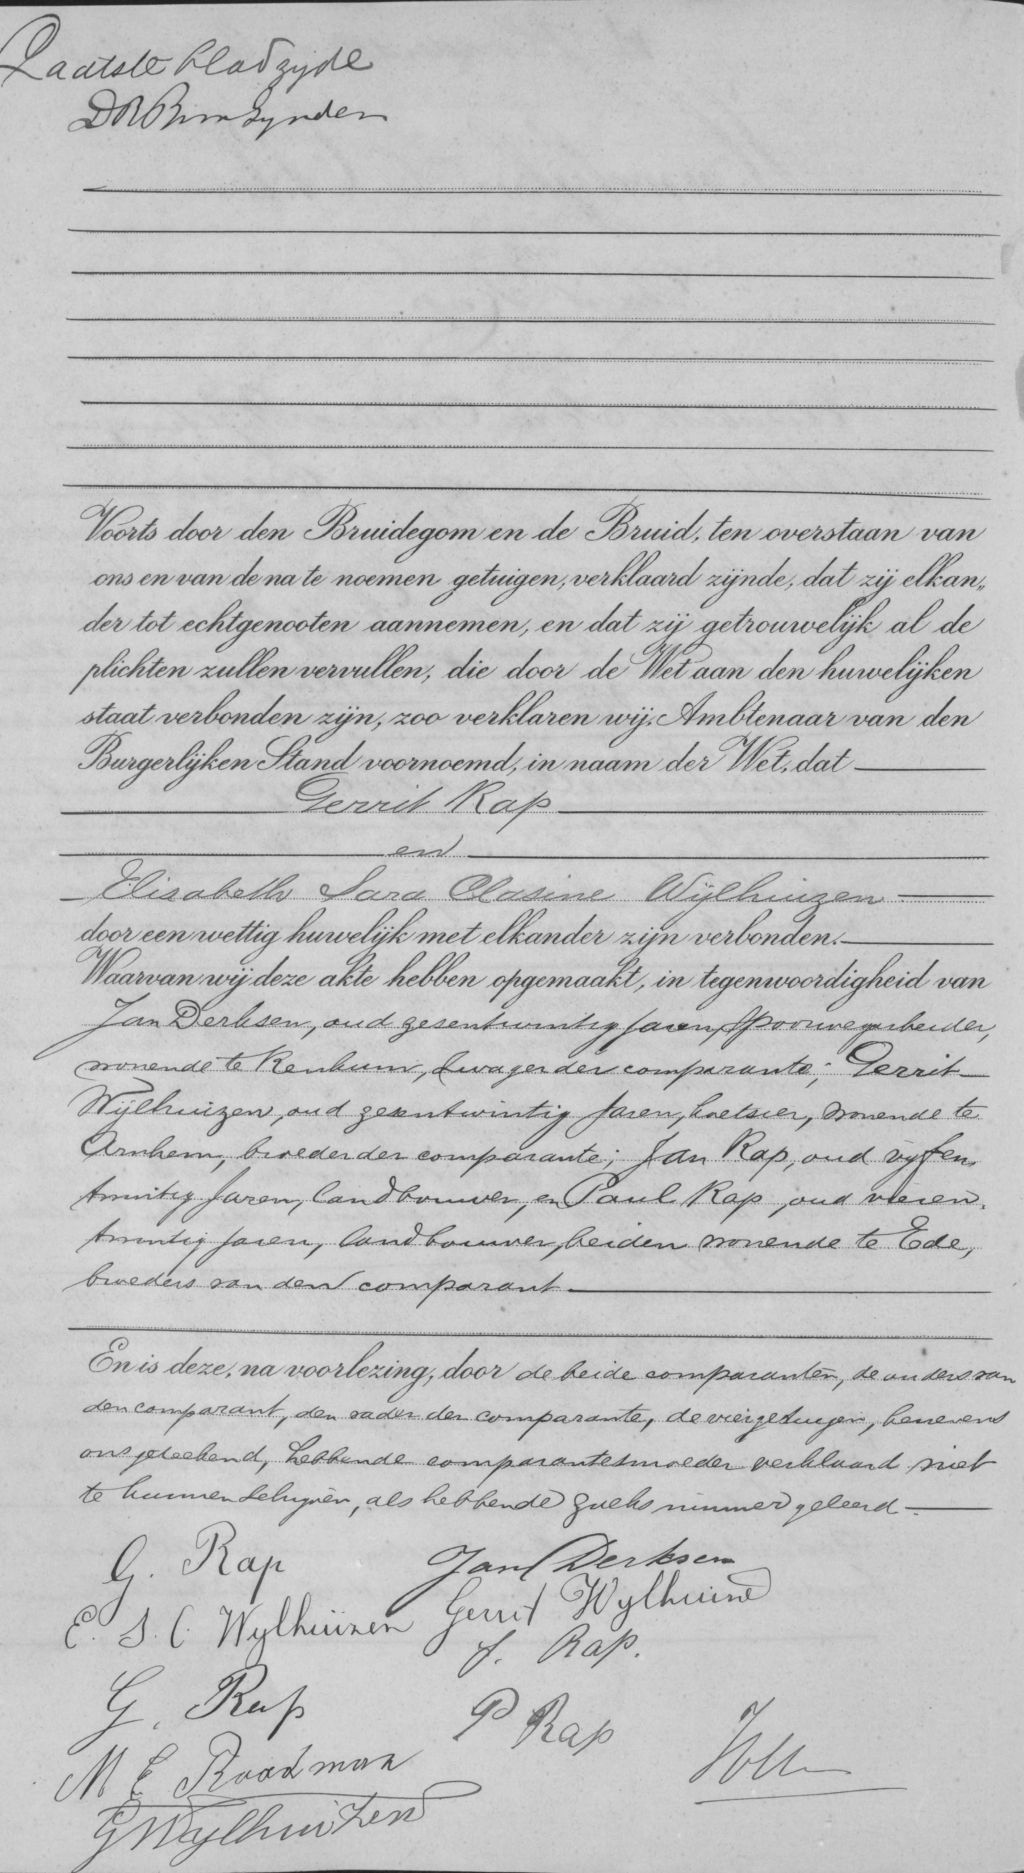 Laatste bladzijde
Voorts door den Bruidegom en de Bruid, ten overstaan van
ons en van de na te noemen getuigen, verklaard zijnde, dat zij elkan„
der tot echtgenooten aannemen, en dat zij getrouwelijk al de
plichten zullen vervullen, die door de Wet aan den huwelijken
staat verbonden zijn, zoo verklaren wij, Ambtenaar van den
Burgerlijken Stand voornoemd, in naam der Wet, dat
Gerrit Rap
en
Elisabeth Sara Clasine Wijlhuizen
door een wettig huwelijk met elkander zijn verbonden.
Waarvan wij deze akte hebben opgemaakt, in tegenwoordigheid van
Jan Derksen, oud zesentwintig jaren, spoorwegarbeider,
wonende te Renkum, zwager der comparante; Gerrit
Wijlhuizen, oud zesentwintig jaren, koetsier, wonende te
Arnhem, broeder der comparante; Jan Rap, oud vijfen
twintig jaren, landbouwer, en Paul Rap, oud vieren
twintig jaren, landbouwer, beiden wonende te Ede,
broeders van den comparant
En is deze, na voorlezing, door de beide comparanten, de ouders van
den comparant, den vader der comparante, de vier getuigen, benevens
ons geteekend, hebbende comparantesmoeder verklaard niet
te kunnen schrijven, als hebbende zulks nimmer geleerd
G. Rap Jan Derksen
E. S. C. Wylhuizen Gerrit Wylhuizen
J. Rap.
G. Rap P Rap
M E Roodman
G Wylhuizen